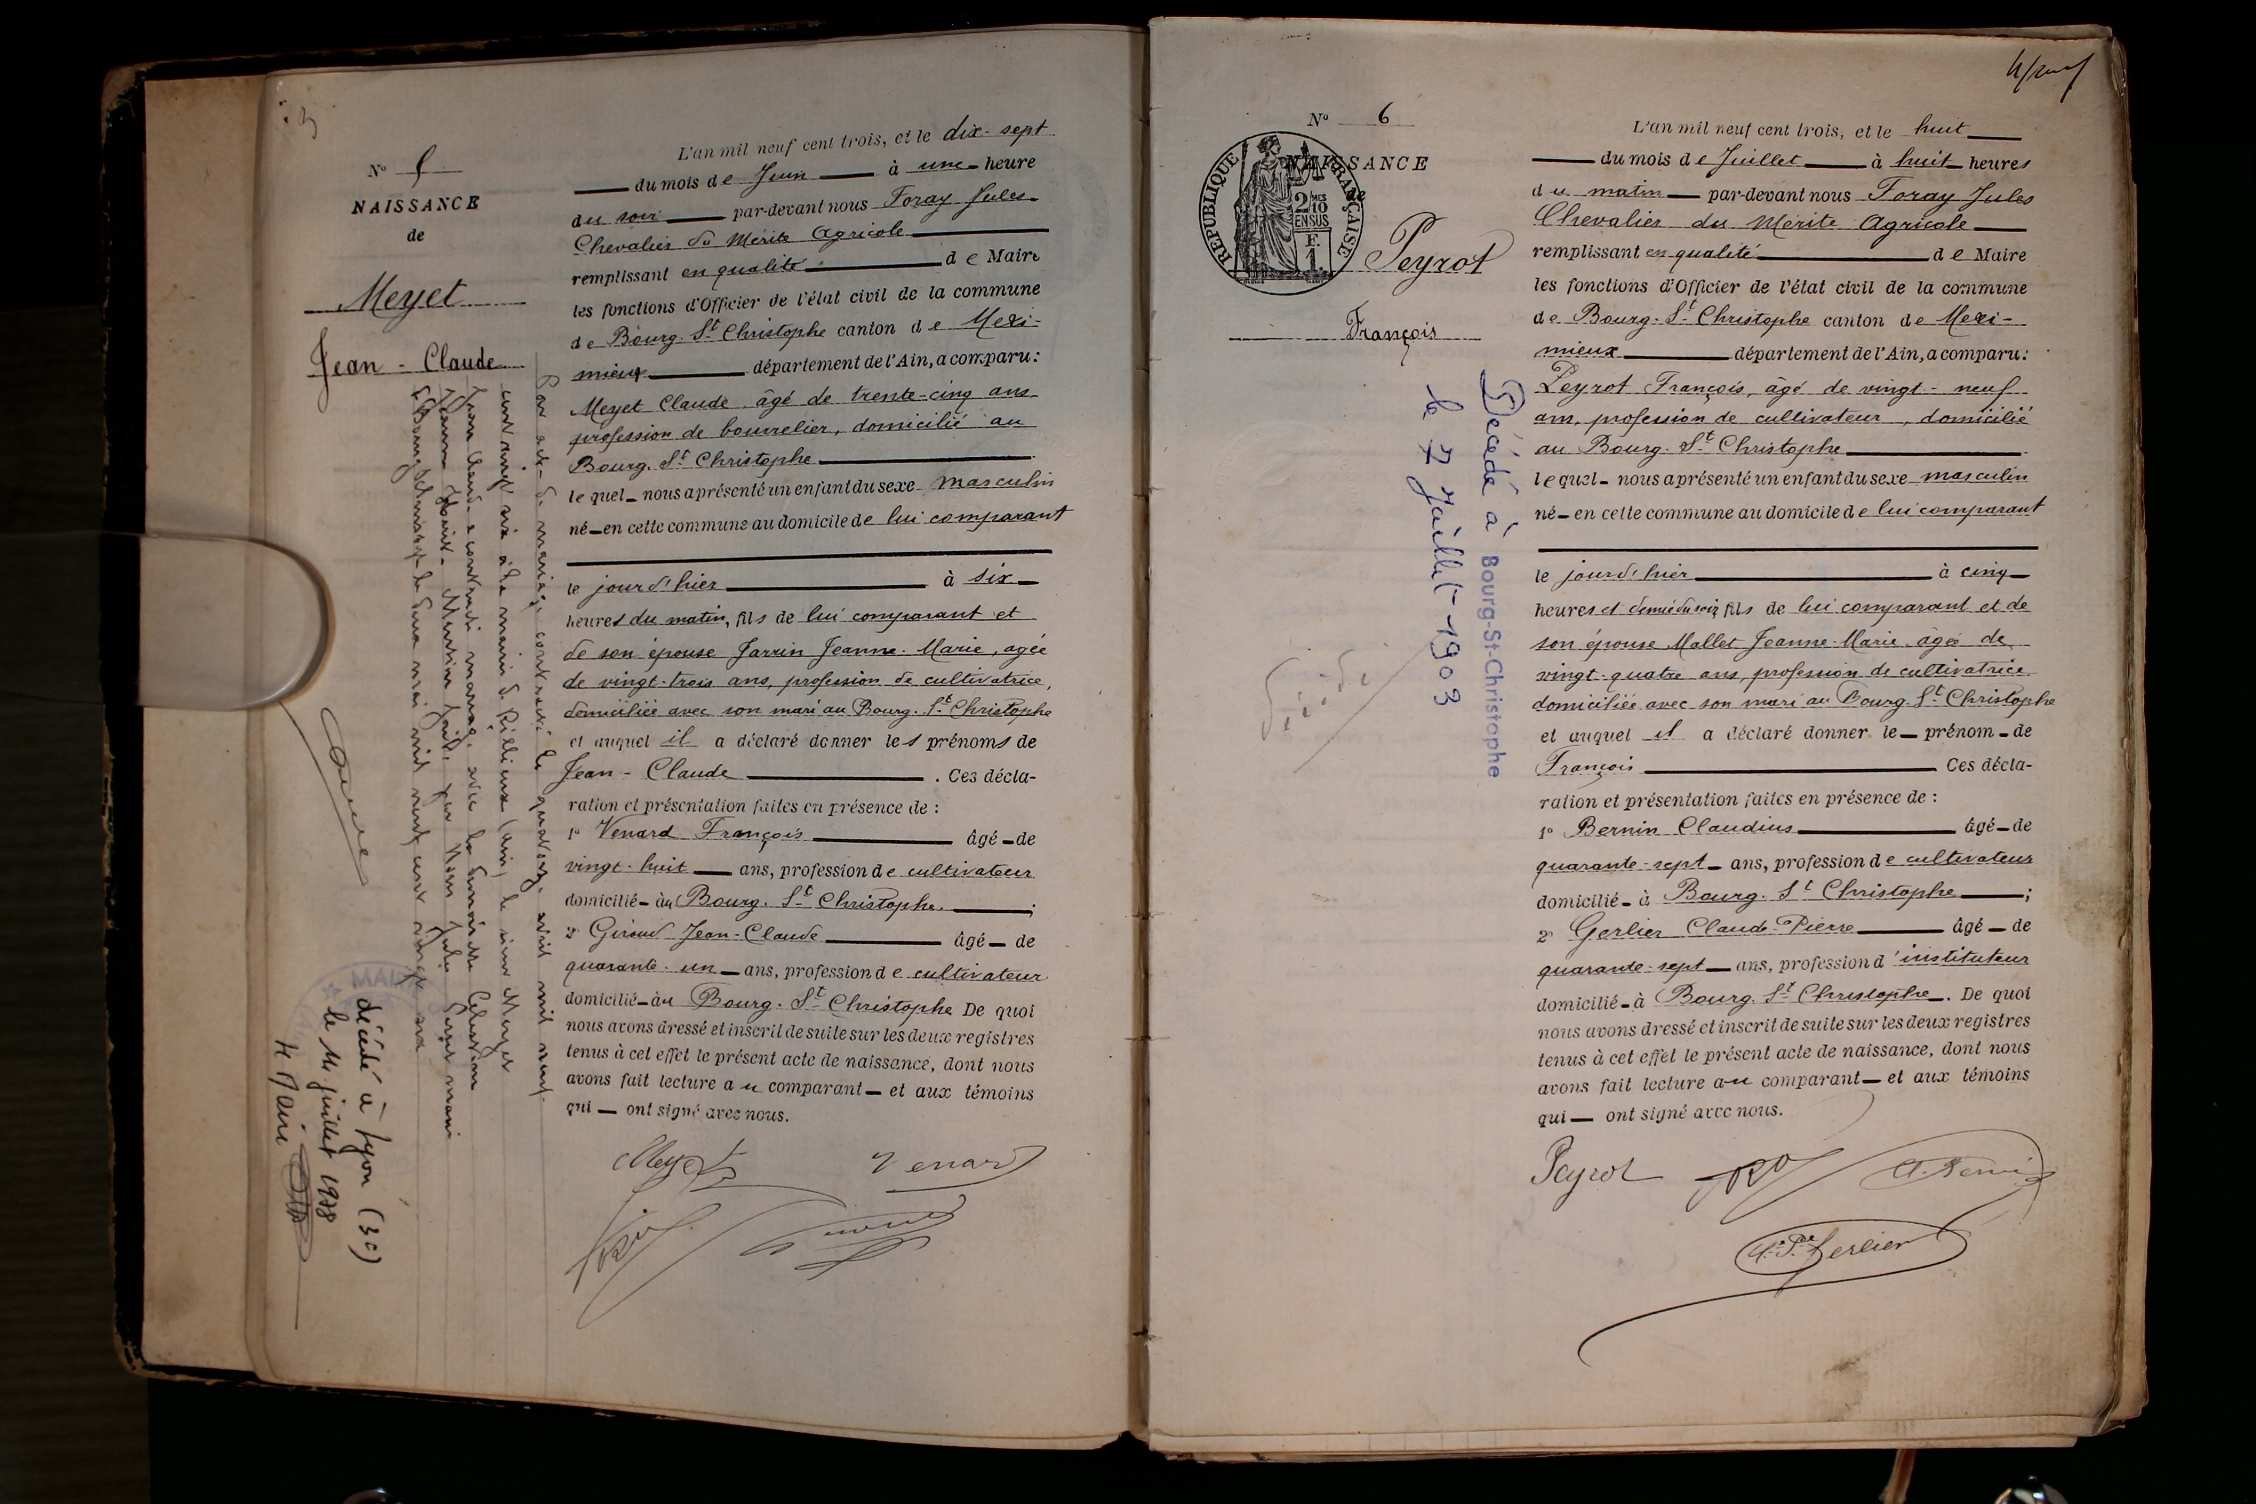 Nº 5
NAISSANCE
de
Meyet
Jean - Claude
L'an mil neuf cent trois, et le dix-sept
du mois de Juin à une heure
du soir par-devant nous Foray Jules
Chevalier du Mérite Agricole
remplissant en qualité de Maire
les fonctions d'Officier de l'état civil de la commune
de Bourg-St Christophe canton de Mexi-
mieux département de l'Ain, a comparu:
Meyet Claude âgé de trente-cinq ans
profession de bourrelier, domicilié au
Bourg. St Christophe
lequel nous a présenté un enfant du sexe masculin
né en cette commune au domicile de lui comparant
le jour d'hier à six
heures du matin, fils de lui comparant et
de son épouse Jarrin Jeanne-Marie, agée
de vingt-trois ans, profession de cultivatrice,
domiciliée avec son mari au Bourg-St Christophe
et auquel il a déclaré donner les prénoms de
Jean - Claude . Ces décla-
ration et présentation faites en présence de :
1º Venard François âgé de
vingt-huit ans, profession de cultivateur
domicilié au Bourg. St Christophe ;
2º Giroud Jean-Claude âgé de
quarante-un ans, profession de cultivateur
domicilié au Bourg. St Christophe De quoi
nous avons dressé et inscrit de suite sur les deux registres
tenus à cet effet le présent acte de naissance, dont nous
avons fait lecture au comparant et aux témoins
qui ont signé avec nous.
Meyet Venard
Par acte de mariage contracté le quatorze avril mil neuf
cent vingt six à la mairie de Rillieux (Ain) le sieur Meyet
Jean Claude a contracté mariage avec
décédé à Lyon (3e)
le 14 juillet 1978
Le Maire
Nº 6
RÉPUBLIQUE FRANÇAISE
2/10 MES
EN SUS
F.
1.
NAISSANCE
de
Peyrot
François
Décédé à Bourg-St-Christophe
le 7 Juillet 1903
Décédé
L'an mil neuf cent trois, et le huit
du mois de Juillet à huit heures
du matin par-devant nous Foray Jules
Chevalier du Mérite Agricole
remplissant en qualité de Maire
les fonctions d'Officier de l'état civil de la commune
de Bourg-St Christophe canton de Mexi-
mieux département de l'Ain, a comparu:
Peyrot François, âgé de vingt-neuf
ans, profession de cultivateur, domicilié
au Bourg. St Christophe
lequel nous a présenté un enfant du sexe masculin
né en cette commune au domicile de lui comparant
le jour d'hier à cinq
heures et demie du soir, fils de lui comparant et de
son épouse Mallet Jeanne-Marie âgée de
vingt-quatre ans, profession de cultivatrice
domiciliée avec son mari au Bourg. St Christophe
et auquel il a déclaré donner le prénom de
François Ces décla-
ration et présentation faites en présence de :
1º Bernin Claudius âgé de
quarante-sept ans, profession de cultivateur
domicilié à Bourg. St Christophe ;
2º Gerlier Claude-Pierre âgé de
quarante-sept ans, profession d'instituteur
domicilié à Bourg. St Christophe. De quoi
nous avons dressé et inscrit de suite sur les deux registres
tenus à cet effet le présent acte de naissance, dont nous
avons fait lecture au comparant et aux témoins
qui ont signé avec nous.
Peyrot
Gerlier